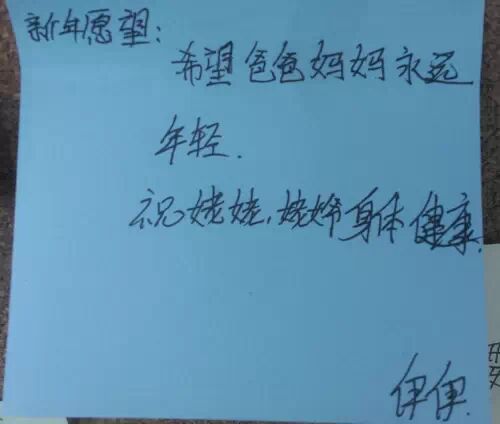 新年愿望：
希望爸爸妈妈永远
年轻.
祝姥姥,姥爷身体健康.
伊伊.